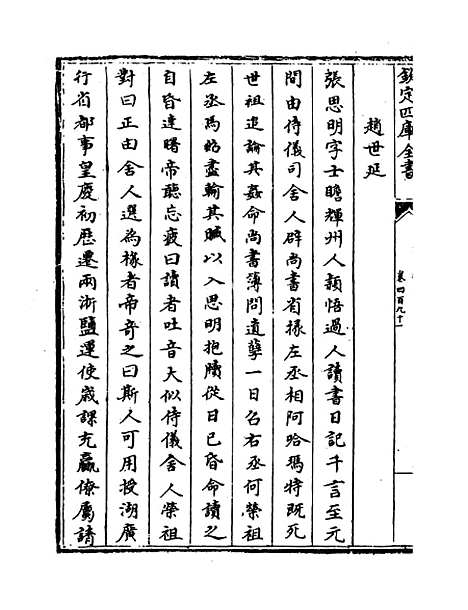 欽定四庫全書
卷四百九十一
趙世延
張思明字士瞻輝州人穎悟過人讀書日記千言至元
間由侍儀司舍人辟尚書省掾左丞相阿哈瑪特既死
世祖追論其姦命尚書簿問遺孽一日召右丞何榮祖
左丞馬紹盡輸其贓以入思明抱牘從日已昏命讀之
自昏達曙帝聽忘疲曰讀者吐音大似侍儀舍人榮祖
對曰正由舍人選為掾者帝奇之曰斯人可用授湖廣
行省都事皇慶初歷遷兩浙鹽運使歲課充贏僚屬請